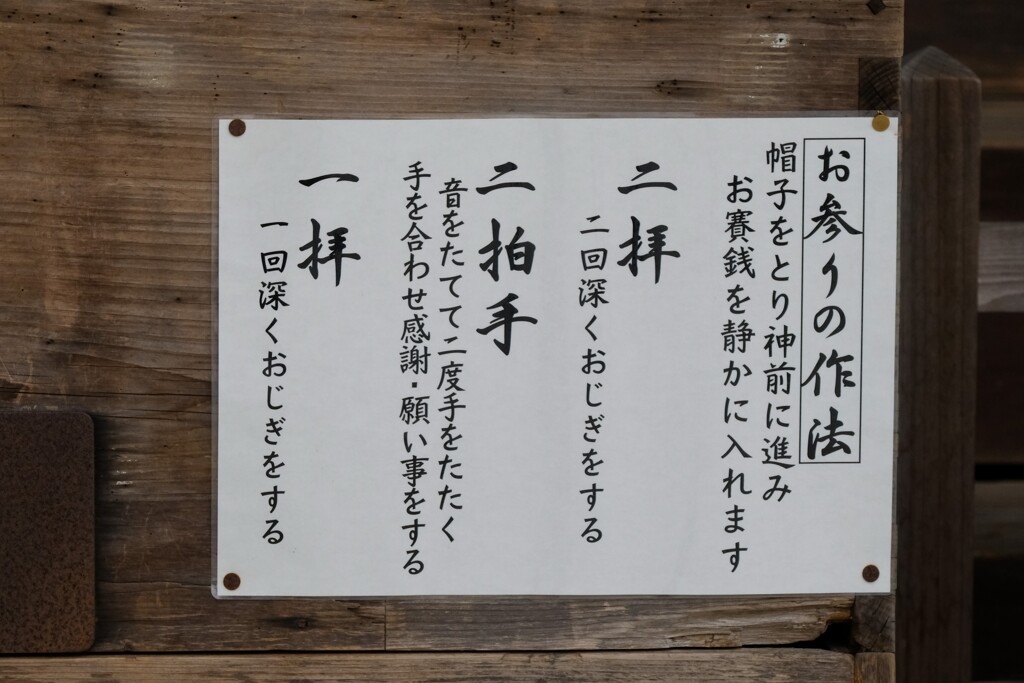 お参りの作法
帽子をとり神前に進み
お賽銭を静かに入れます
二拝
二回深くおじぎをする
二拍手
音をたてて二度手をたたく
手を合わせ感謝・願い事をする
一拝
一回深くおじぎをする